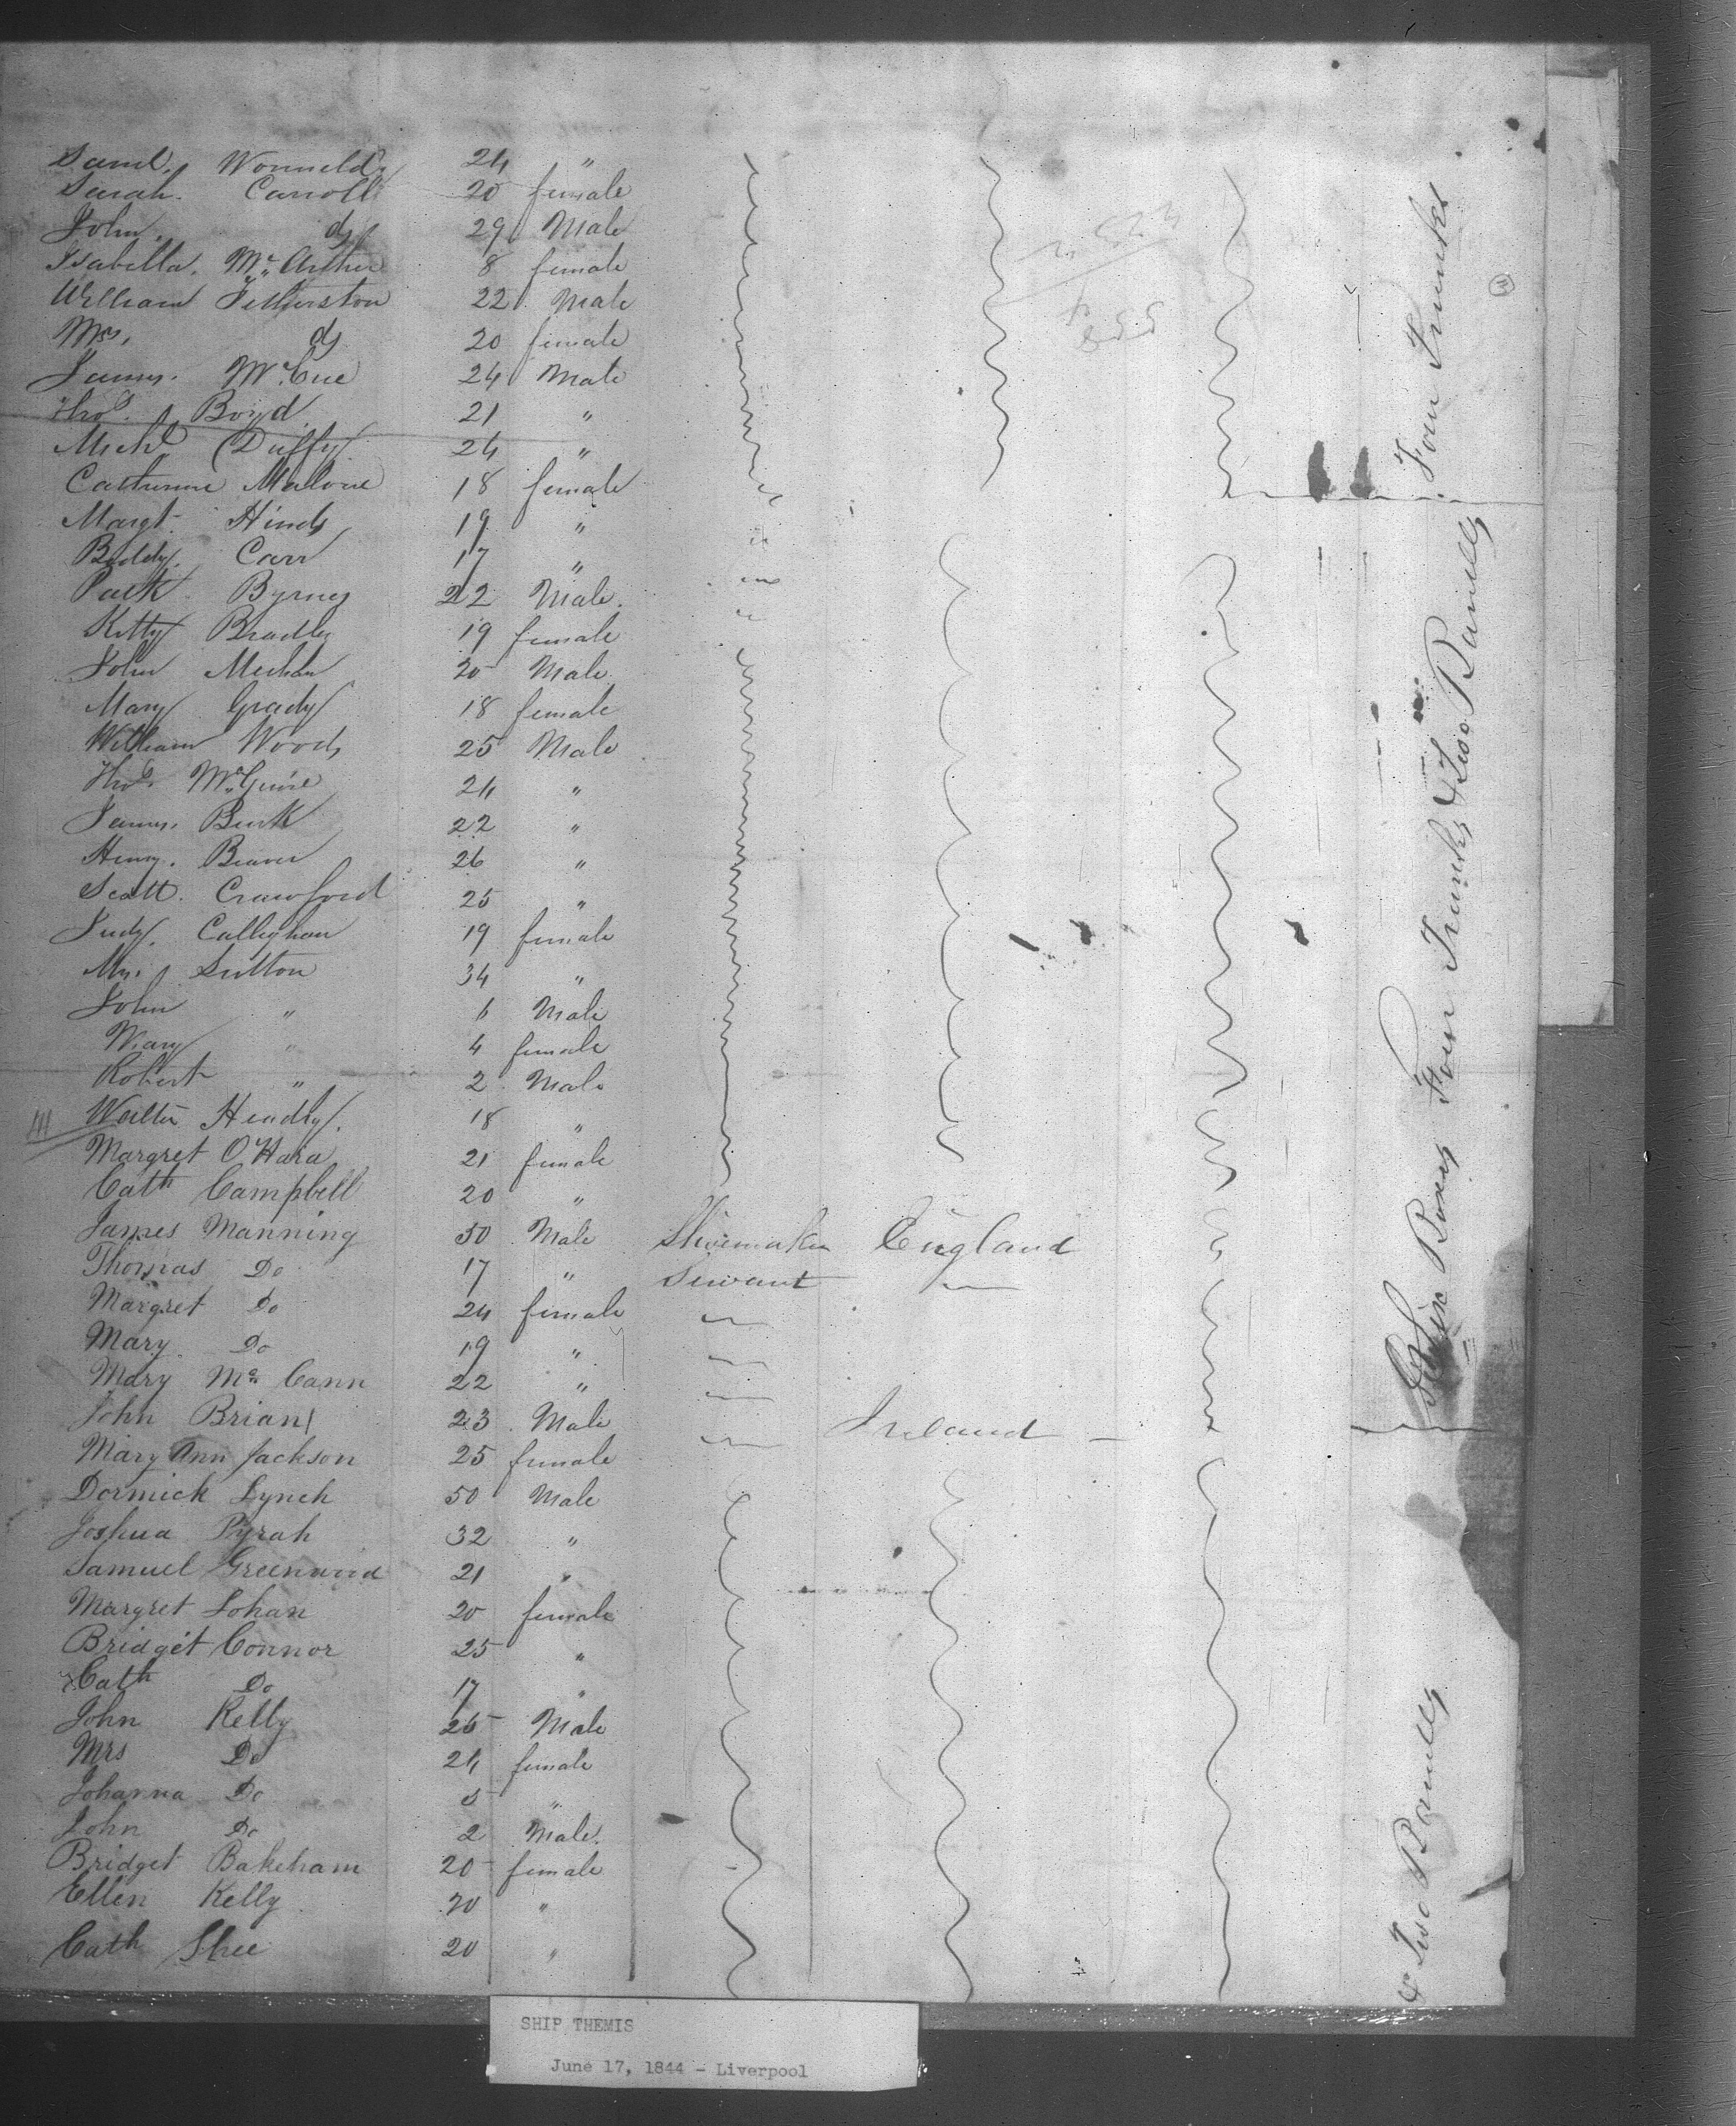 Saml. 24 "
Sarah. Carroll 20 female
John. do 29 Male
Isabella. Mc Arthur 8 female
William Fetherston 22 Male
Mrs. do 20 female
James. McCue 24 Male
Thos. Boyd 21 "
Michl. Duffy 24 "
Catherine Malone 18 female
Margt. Hinds 19 "
Biddy. Carr 17 "
Patk. Byrnes 22 Male.
Kitty Bradley 19 female
John Meehan 20 Male.
Mary Grady 18 female
William Woods 25 Male
Thos. McGuire 24 "
James. Burk 22 "
Henry. Beaver 26 "
Scott. Crawford 25 "
Judy. Calleghan 19 female
Mrs. Sutton 34 "
John " 6 Male
Mary " 4 female
Robert " 2 Male
Walter Hendly. 18 "
Margret O'Hara 21 female
Cath Campbell 20 "
James Manning 50 Male Shoemaker England
Thomas Do 17 " Servant
Margret Do 24 female
Mary. Do 19 "
Mary Mc Cann 22 "
John Brian 23 Male Ireland
Mary Ann Jackson 25 female
Dormick Lynch 50 Male
Joshua Pyrah 32 "
Samuel Greenwood 21 "
Margret Lohan 20 female
Bridget Connor 25 "
Cath Do 17 "
John Kelly 26 Male
Mrs Do 24 female
Johanna Do 5 "
John Do 2 Male.
Bridget Bakeham 20 female
Ellen Kelly 20 "
Cath Shee 20 "
Four Trunks
Six Boxes Four Trunks & Two Barrells
& Two Barrells
SHIP THEMIS
June 17, 1844 - Liverpool